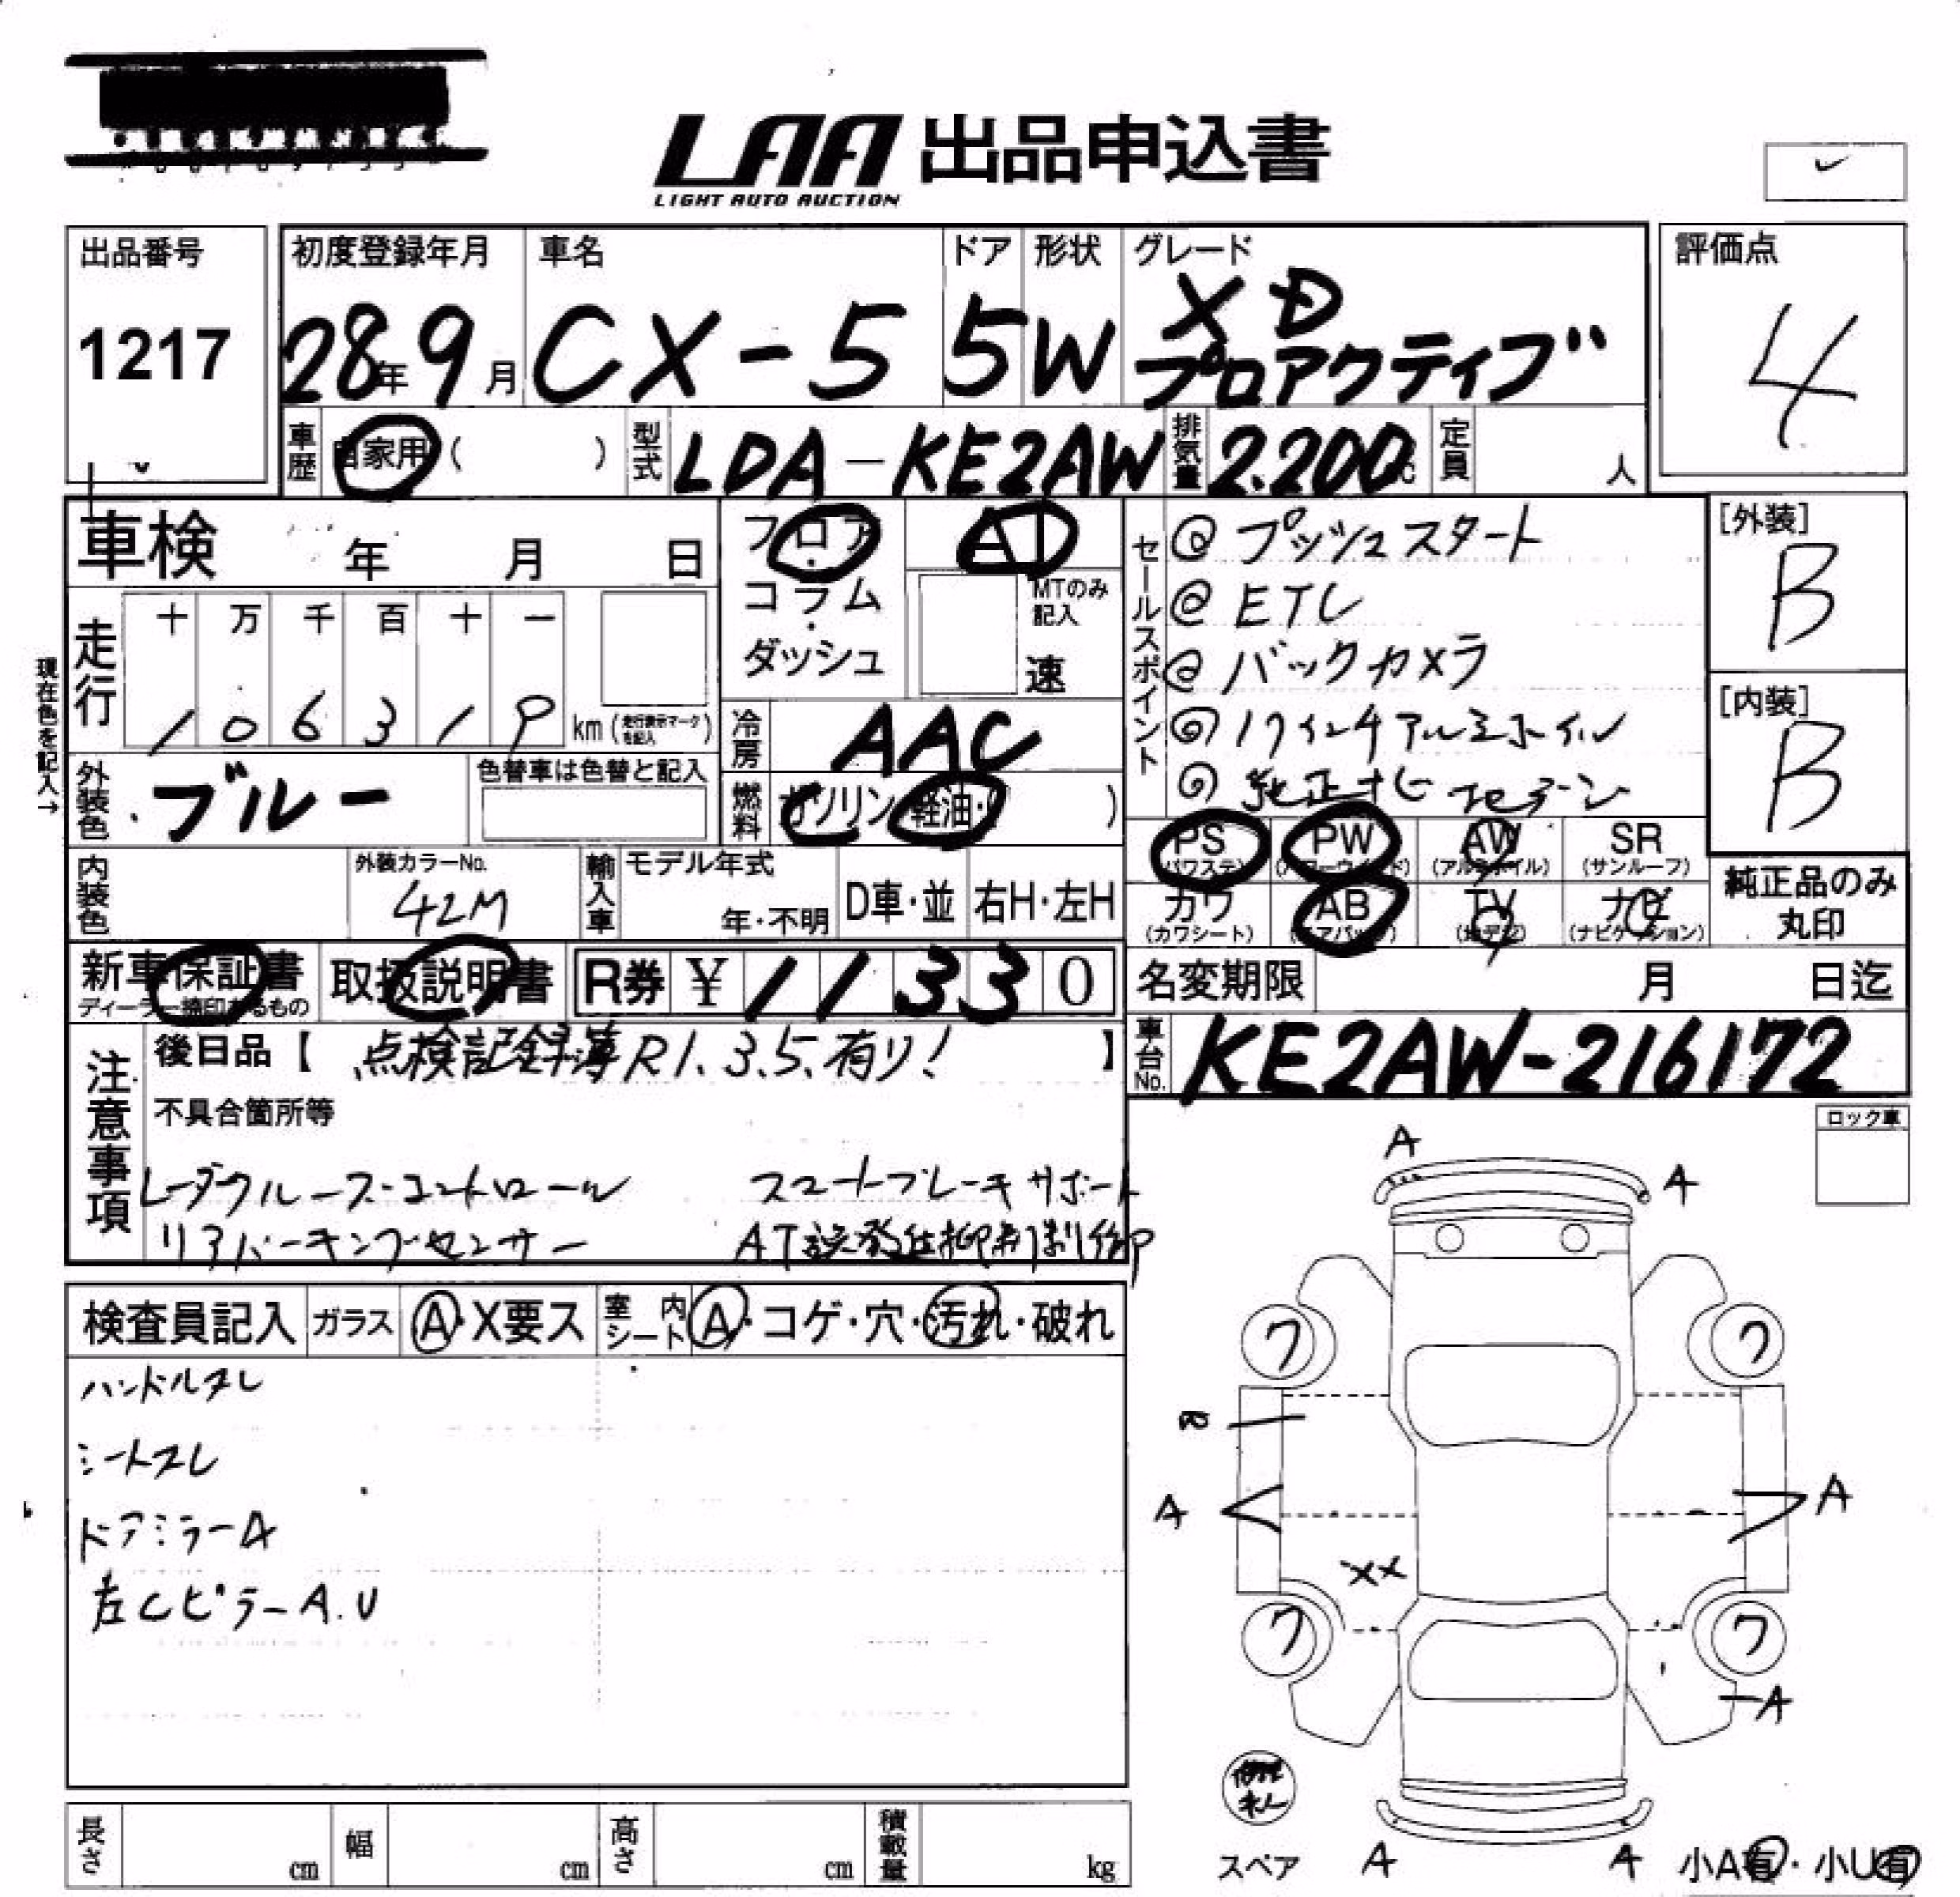 LAA 出品申込書
LIGHT AUTO AUCTION
出品番号
1217
初度登録年月
28年9月
車名
CX-5
ドア
5
形状
W
グレード
XD
プロアクティブ
評価点
4
車歴
自家用( )
型式
LDA-KE2AW
排気量
2.200cc
定員
人
車検 年 月 日
フロア・
コラム・
ダッシュ
AT
MTのみ
記入
速
セールスポイント
@ プッシュスタート
@ ETC
@ バックカメラ
@ 17インチアルミホイル
@ 純正ナビ
[外装]
B
[内装]
B
現在色を記入→
走行
十 万 千 百 十 一
1 0 6 3 1 9 km (走行表示マークを記入)
冷房
AAC
外装色
ブルー
色替車は色替と記入
燃料
ガソリン・軽油・( )
PS
(パワステ)
PW
(パワーウインド)
AW
(アルミホイル)
SR
(サンルーフ)
カワ
(カワシート)
AB
(エアバッグ)
TV
(地デジ)
ナビ
(ナビゲーション)
純正品のみ
丸印
内装色
外装カラーNo.
42M
輸入車
モデル年式
年・不明
D車・並
右H・左H
新車保証書
ディーラー捺印あるもの
取扱説明書
R券 ¥ 11330
名変期限 月 日迄
注意事項
後日品【 点検記録簿R1.3.5.有り! 】
車台No.
KE2AW-216172
不具合箇所等
レーダクルーズコントロール スマートブレーキサポート
リアパーキングセンサー AT誤発進抑制制御
ロック車
検査員記入
ガラス
A・X要ス
室内シート
A・コゲ・穴・汚れ・破れ
ハンドルスレ
シートスレ
ドアミラーA
左CピラーA.U
A
A
ワ
ワ
A
A
XX
ワ
ワ
A
スペア
A
A
小A有・小U有
長さ cm
幅 cm
高さ cm
積載量 kg